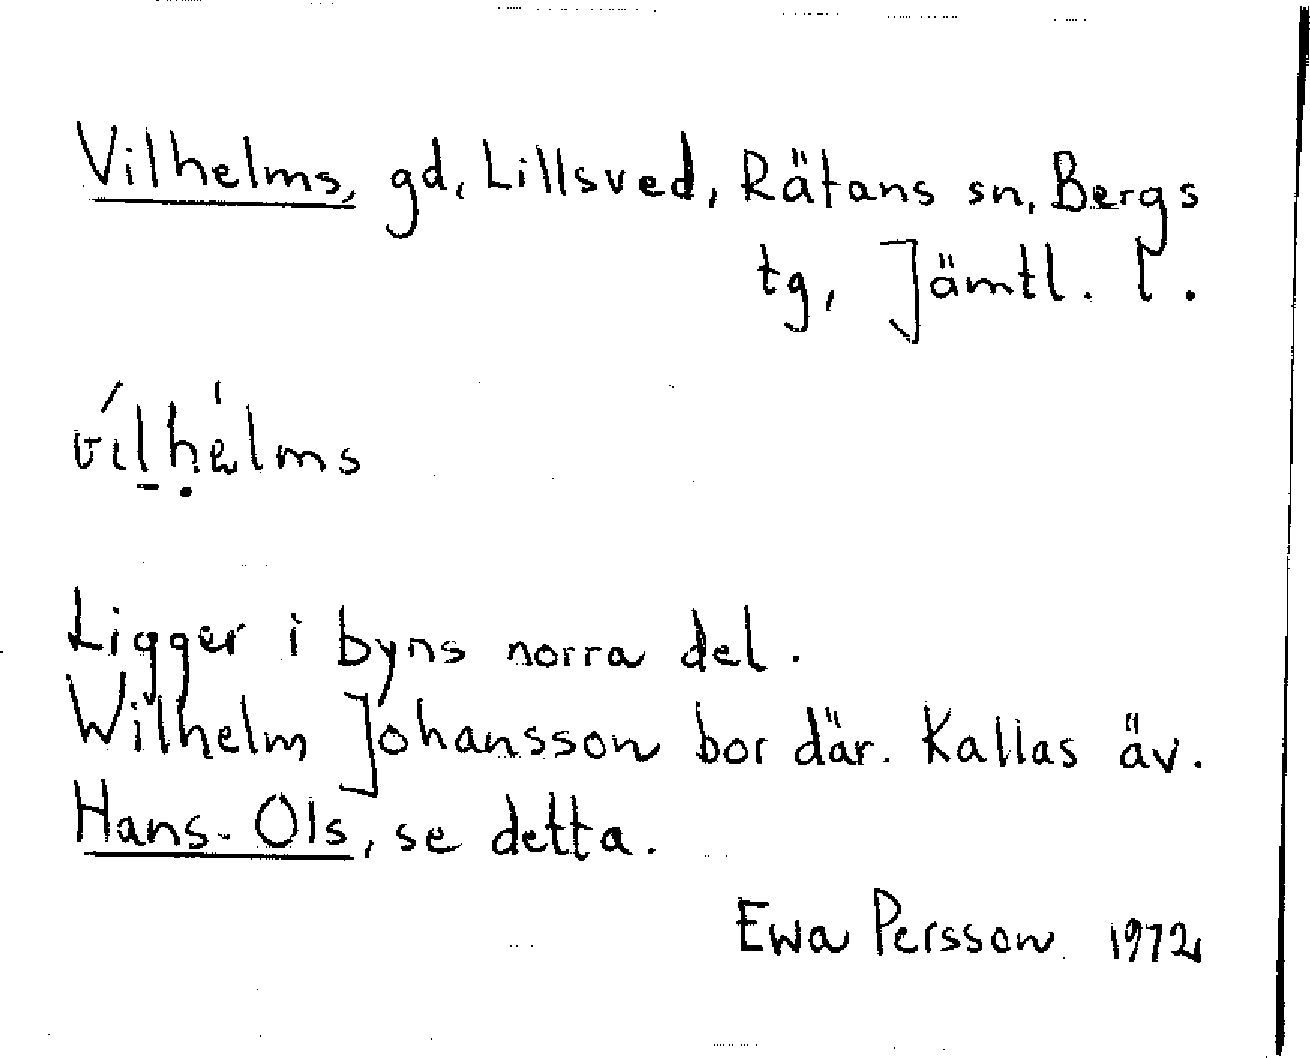 Vilhelms, gd, Lillsved, Rätans sn, Bergs
tg, Jämtl. l.
víl̠ḥèlms
Ligger i byns norra del.
Wilhelm Johansson bor där. Kallas äv.
Hans-Ols, se detta.
Ewa Persson 1972